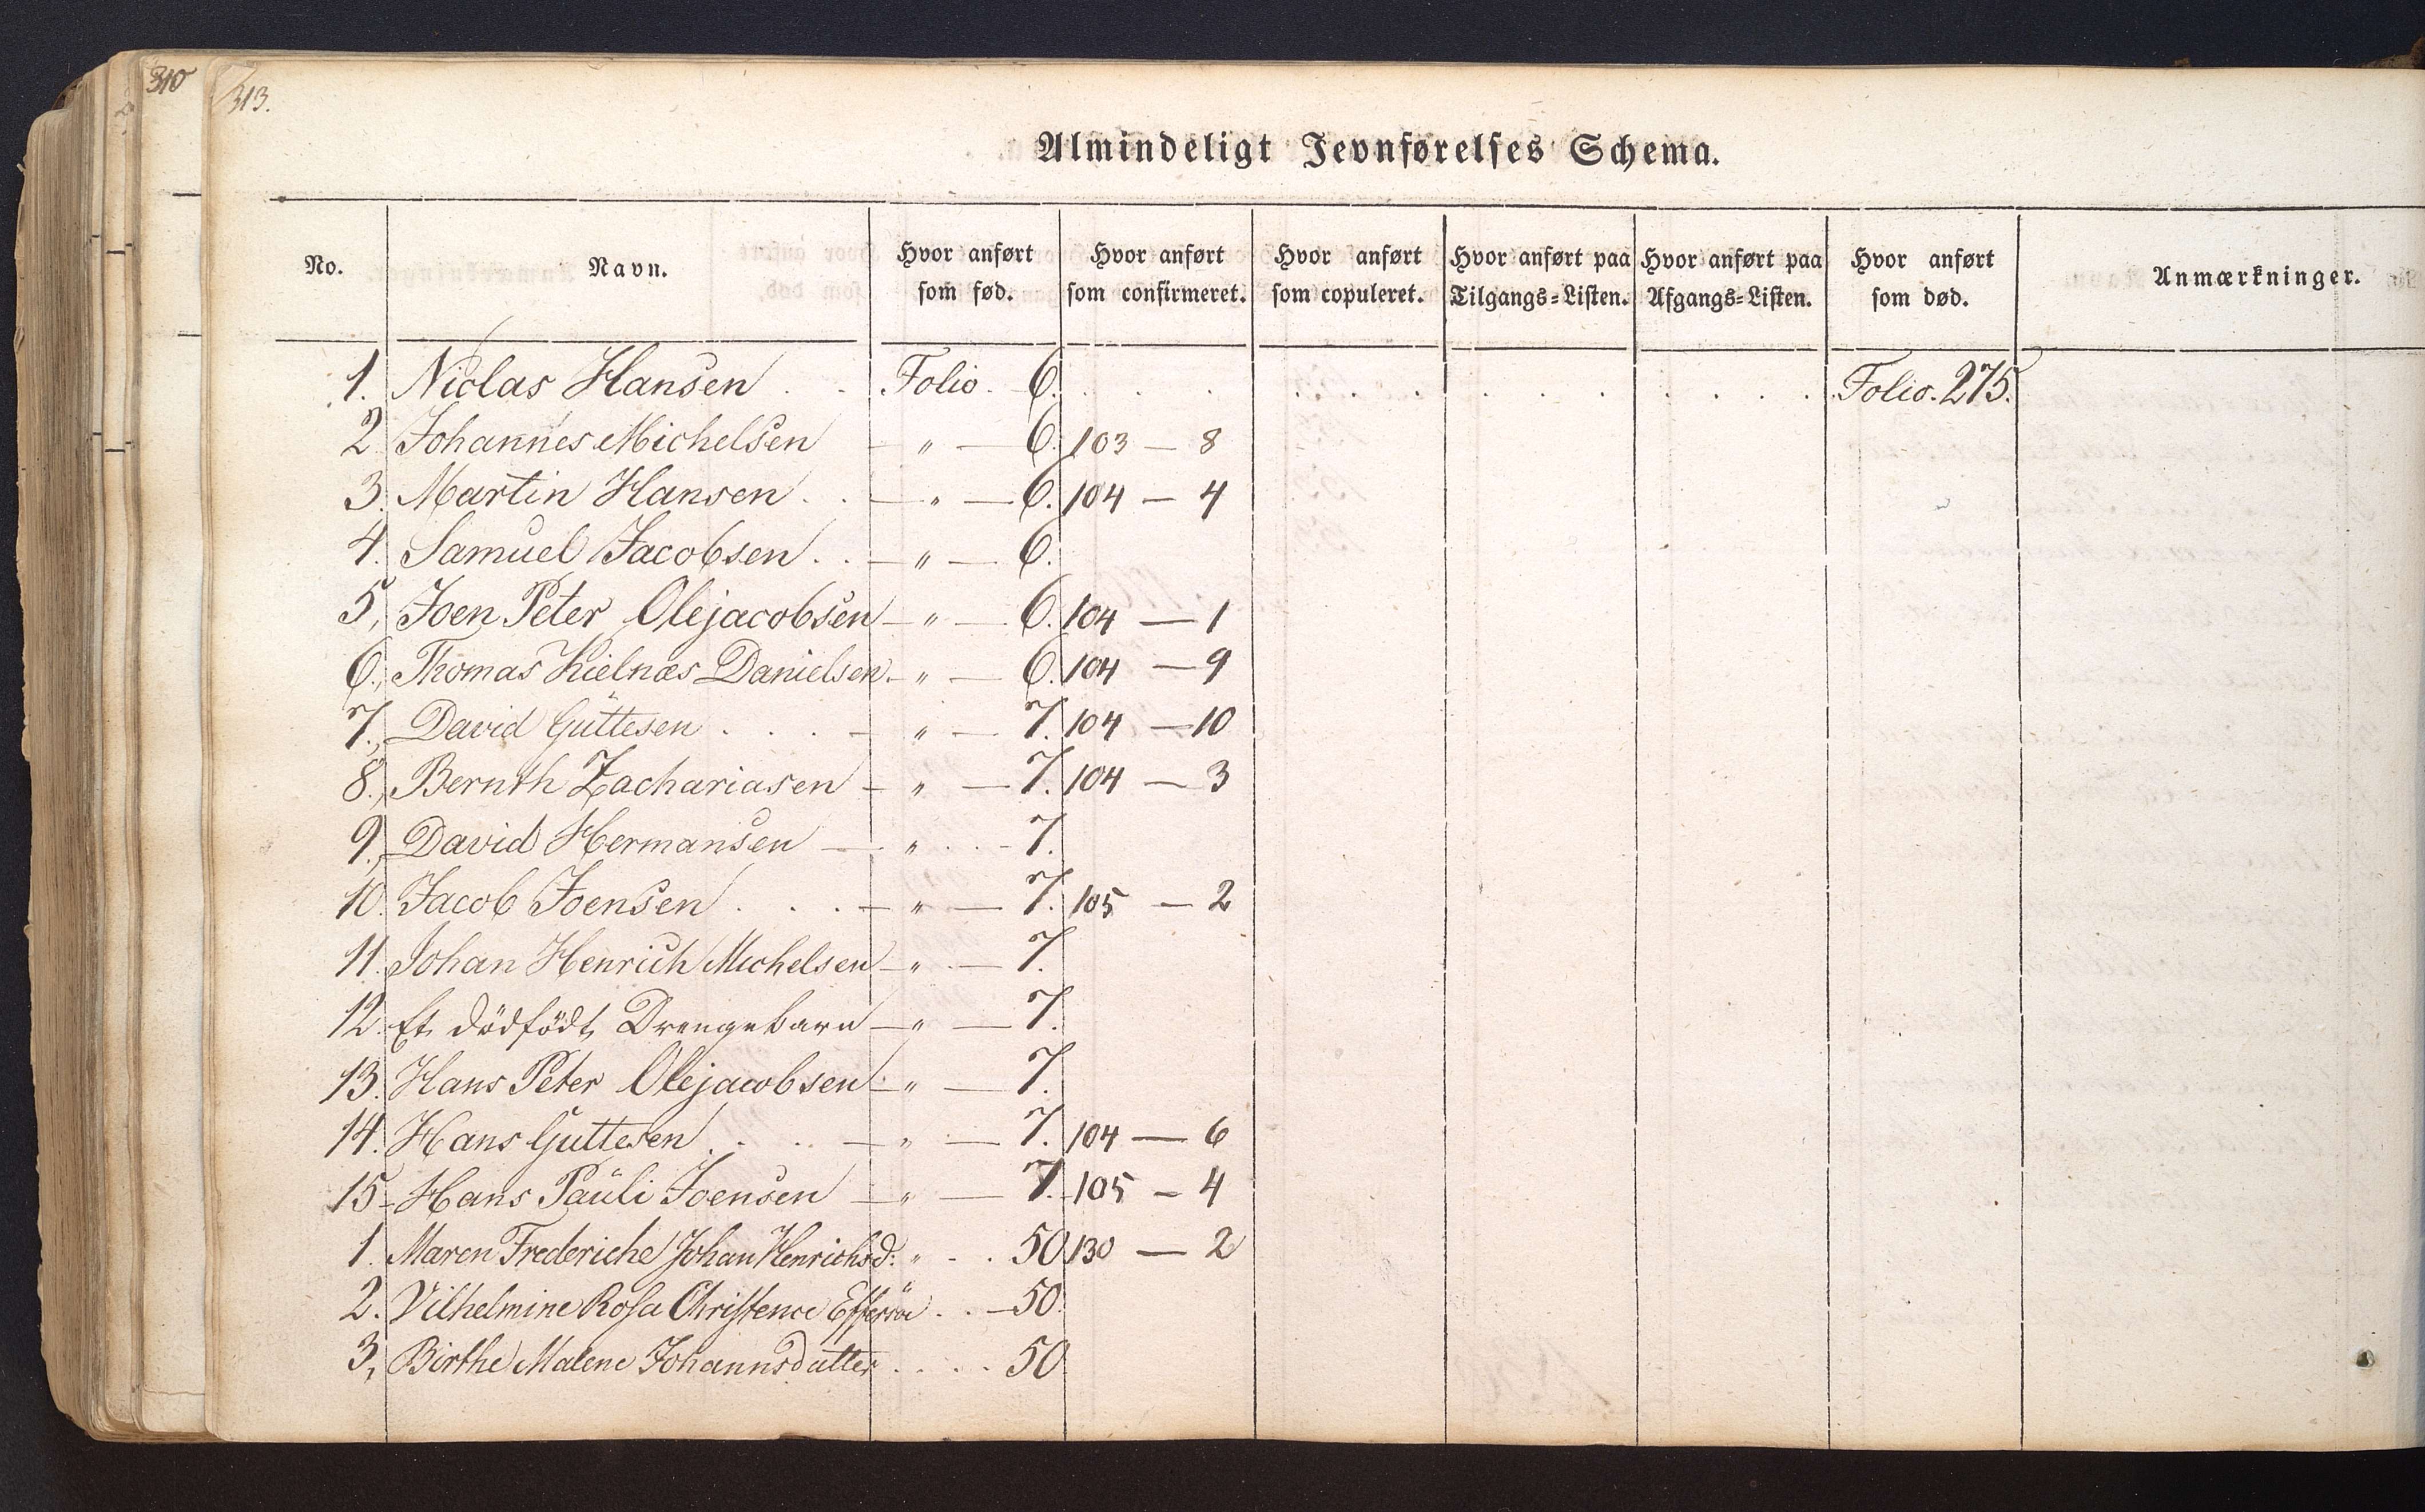 310
313.
Almindeligt Jevnførelses Schema.
No. Navn. Hvor anført som fød. Hvor anført som confirmeret. Hvor anført som copuleret. Hvor anført paa Tilgangs-Listen. Hvor anført paa Afgangs-Listen. Hvor anført som død. Anmærkninger.
1. Niclas Hansen . . Folio. 6. . . . . . . . . . . . . . . Folio. 275.
2 Johannes Michelsen — " — 6. 103 — 8
3. Martin Hansen . . — " — 6. 104 — 4
4. Samuel Jacobsen . . — " — 6.
5, Joen Peter Olejacobsen — " — 6. 104 — 1
6., Thomas Kielnæs Danielsen — " — 6. 104 — 9
7., David Guttesen . . . — " — 7. 104 — 10
8., Bernth Zachariasen — " — 7. 104 — 3
9., David Hermansen — " . . - 7.
10. Jacob Joensen . . . — " — 7. 105 — 2
11. Johan Henrich Michelsen — " — 7.
12. Et dödfödt Drengebarn — " — 7.
13. Hans Peter Olejacobsen — " — 7.
14. Hans Guttesen . . . — " — 7. 104 — 6
15 - Hans Pauli Joensen — " — 7. 105 — 4
1. Maren Frederiche Johan Henrichsd: " - . 50 130 — 2
2. Vilhelmine Rosa Christence Effersöe . . — 50.
3, Birthe Malene Johannsdatter . . . . 50